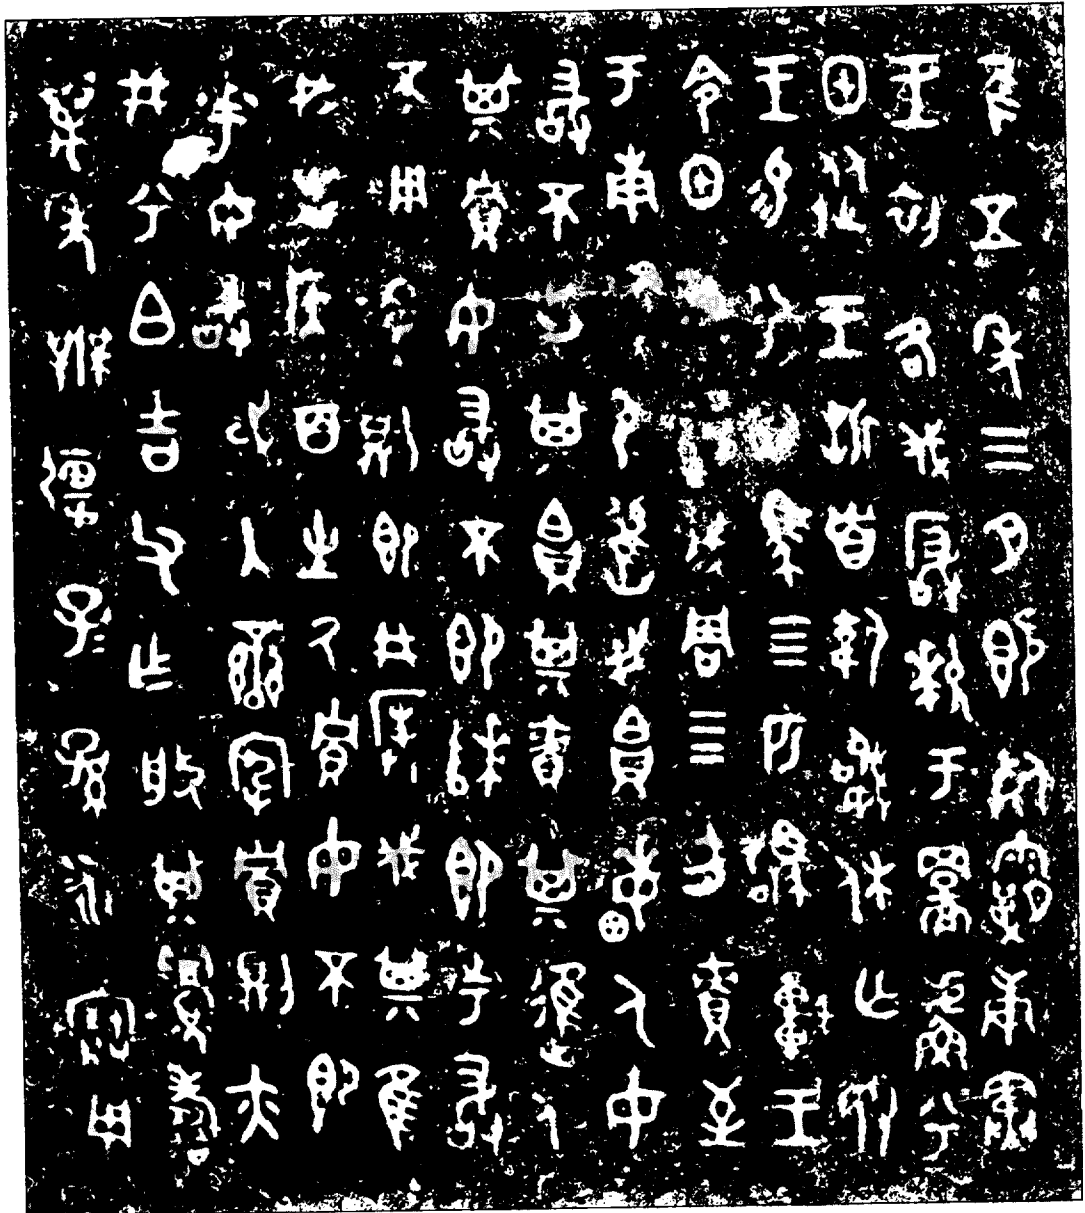 隹五年三月既死霸庚寅
王初各伐厰𤞤于䣙䖒兮
甲從王折首執訊休亡敃
王易兮甲馬四匹駒車王
令甲政𤔲成周四方責至
于南淮尸淮尸舊我帛畮人毋
敢不出其帛其責其進人
其貯毋敢不即次即市敢
不用令則即井撲伐其隹
我者侯百生厥貯毋不即
市毋敢或入蠻宄貯則亦
井兮白吉父乍般其眉壽
萬年無疆子子孫孫永寶用